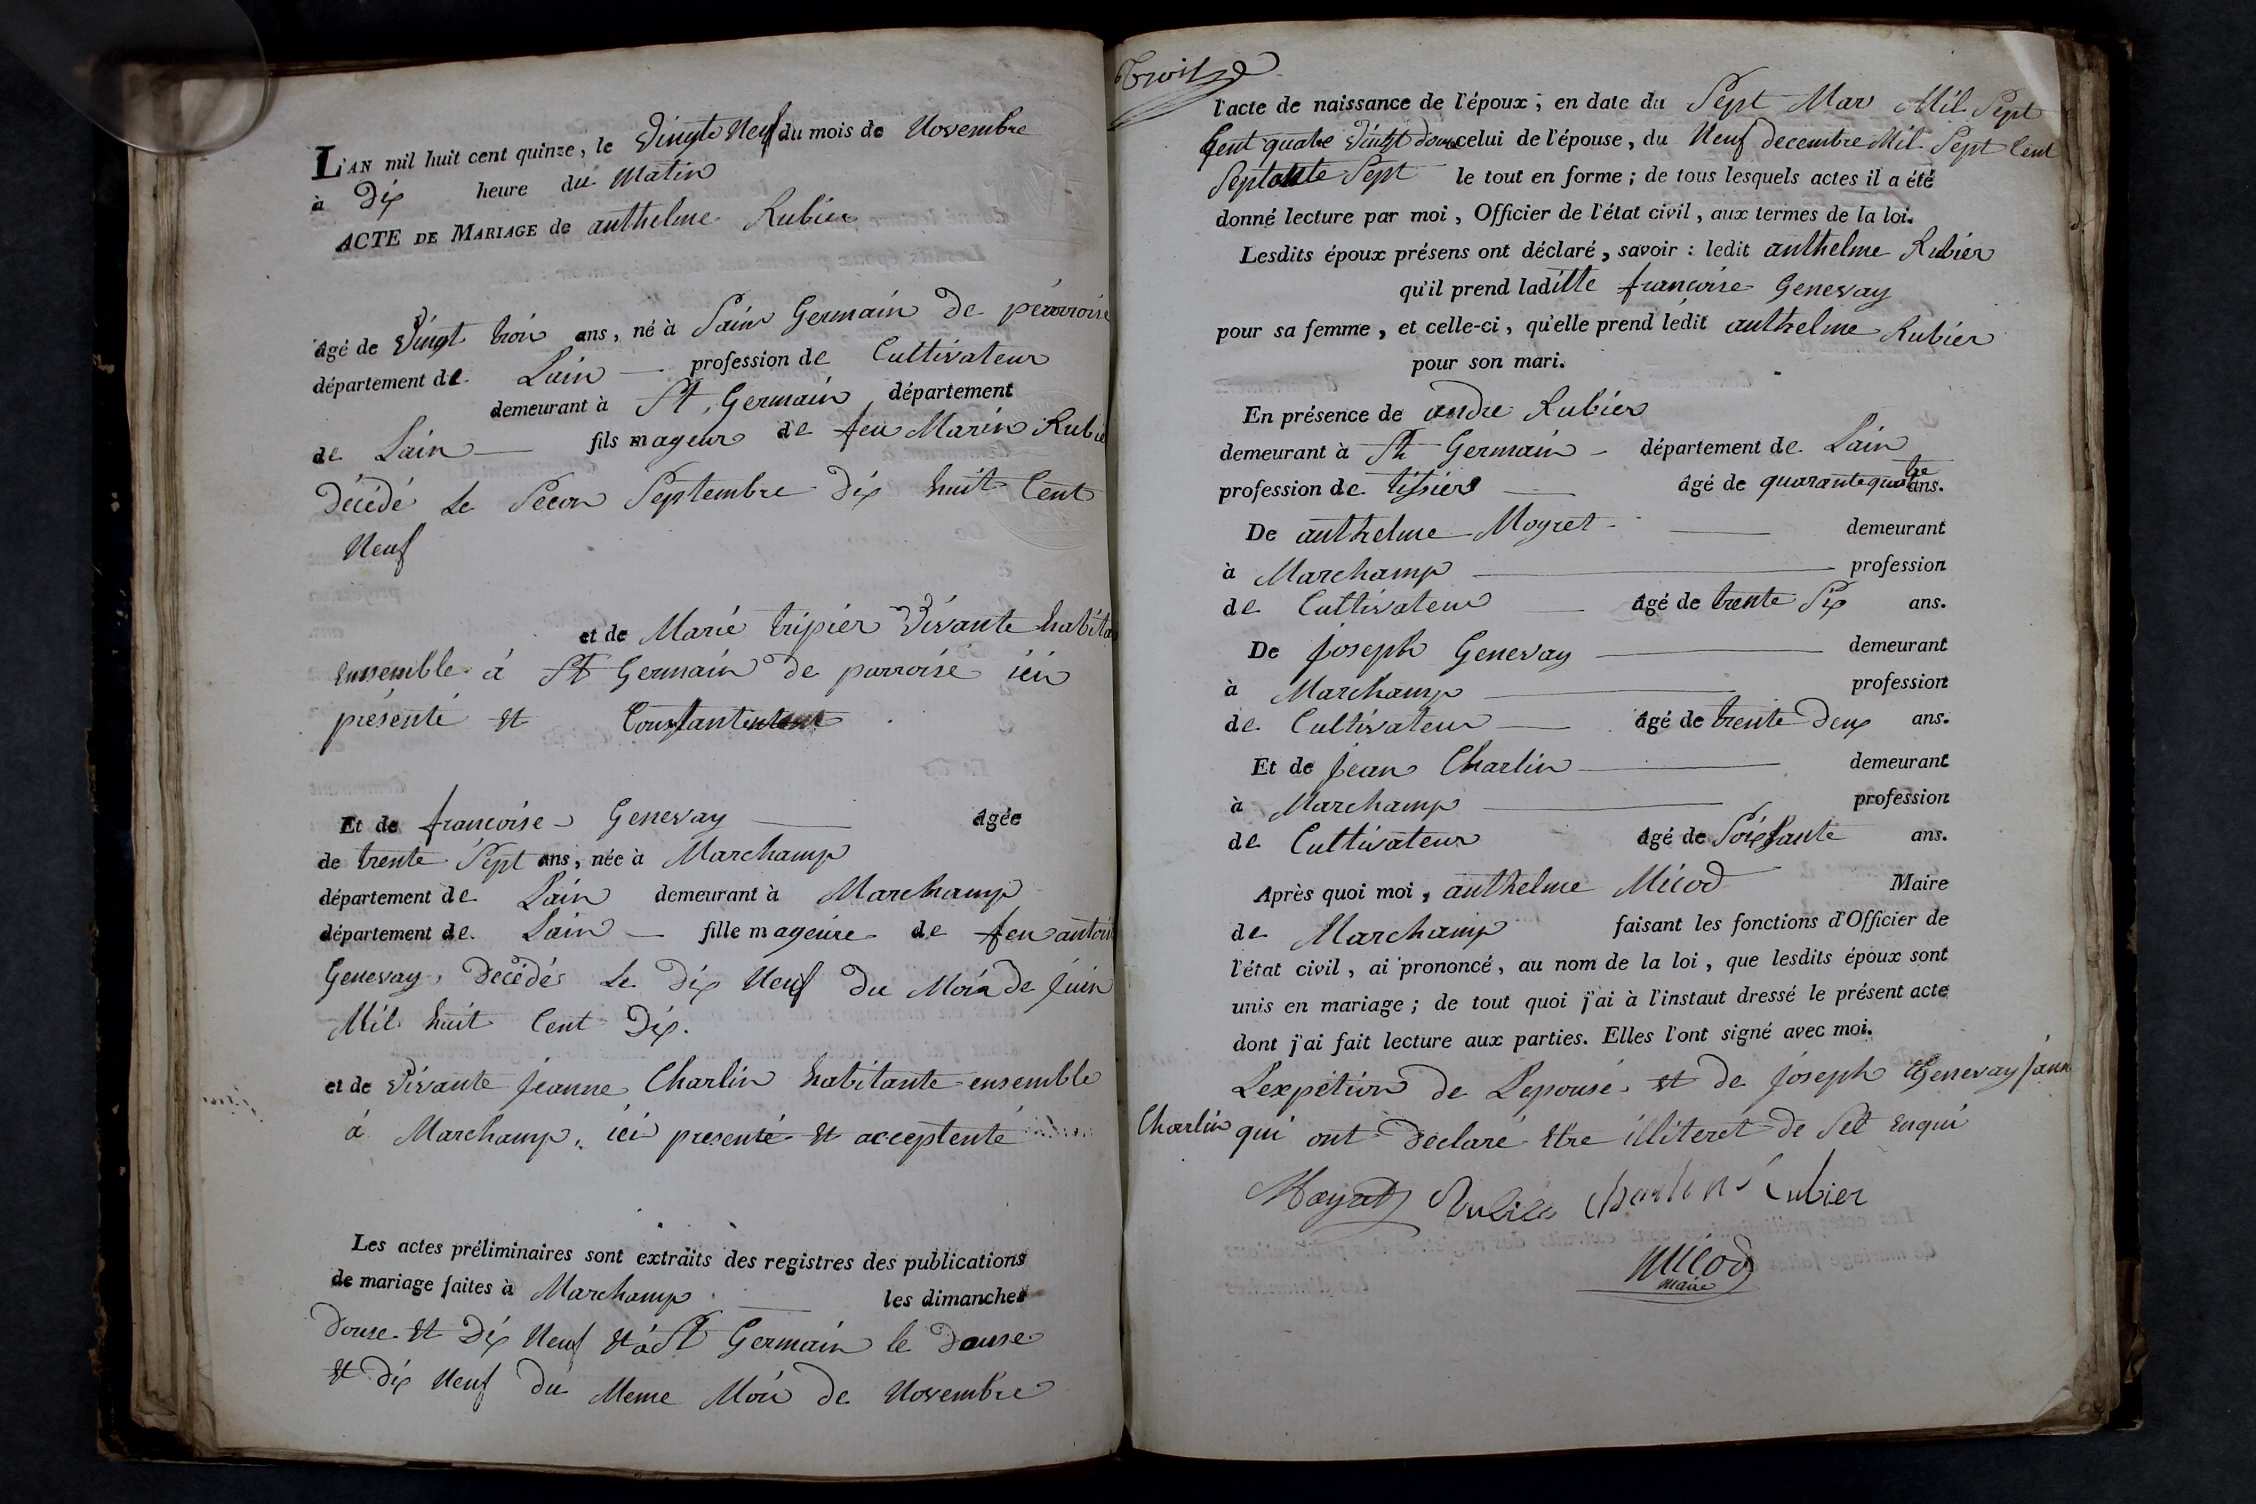 L'AN mil huit cent quinze, le Vingte Neuf du mois de Novembre
à Dix heure du Matin
ACTE DE MARIAGE de anthelme Rubier
âgé de Vingt trois ans, né à Saint Germain de
département de Lain profession de Cultivateur
demeurant à St Germain département
de Lain fils mageur de feu Marin Rubie
décédé le Secon Septembre dix huit Cent
Neuf
et de Marie tripier Vivante habita
ensemble à St Germain de parroise ici
présente et
Et de francoise Genevay âgée
de trente Sept ans, née à Marchamp
département de Lain demeurant à Marchamp
département de Lain fille mageure de feu antoi
Genevay, décédé le Dix Neuf du Mois de Juin
Mil huit Cent Dix.
et de Vivante Jeanne Charlin habitante ensemble
à Marchamp, ici presente et acceptente
Les actes préliminaires sont extraits des registres des publications
de mariage faites à Marchamp les dimanches
douse et Dix Neuf et à St Germain le douse
et dix Neuf du Meme Moi de Novembre
Troize
l'acte de naissance de l'époux, en date du Sept Mar Mil Sept
Cent quatre Vingt douze celui de l'épouse, du Neuf decembre Mil Sept Cent
Septante Sept le tout en forme ; de tous lesquels actes il a été
donné lecture par moi, Officier de l'état civil, aux termes de la loi.
Lesdits époux présens ont déclaré, savoir : ledit anthelme Rubier
qu'il prend laditte francoise Genevay
pour sa femme, et celle-ci, qu'elle prend ledit anthelme Rubier
pour son mari.
En présence de andre Rubier
demeurant à St Germain département de Lain
profession de tissier âgé de quarante quatre ans.
De anthelme Moyret demeurant
à Marchamp profession
de Cultivateur âgé de trente Six ans.
De Joseph Genevay demeurant
à Marchamp profession
de Cultivateur âgé de trente Deux ans.
Et de Jean Charlin demeurant
à Marchamp profession
de Cultivateur âgé de Soixsante ans.
Après quoi moi, anthelme Micod Maire
de Marchamp faisant les fonctions d'Officier de
l'état civil, ai prononcé, au nom de la loi, que lesdits époux sont
unis en mariage ; de tout quoi j'ai à l'instaut dressé le présent acte
dont j'ai fait lecture aux parties. Elles l'ont signé avec moi.
Lexpétion de Lepouse et de Joseph Genevay Jann
Charlin qui ont déclaré être illiteret de Set enqui
Moyret Rubier Charlin Rubier
Micod
maire